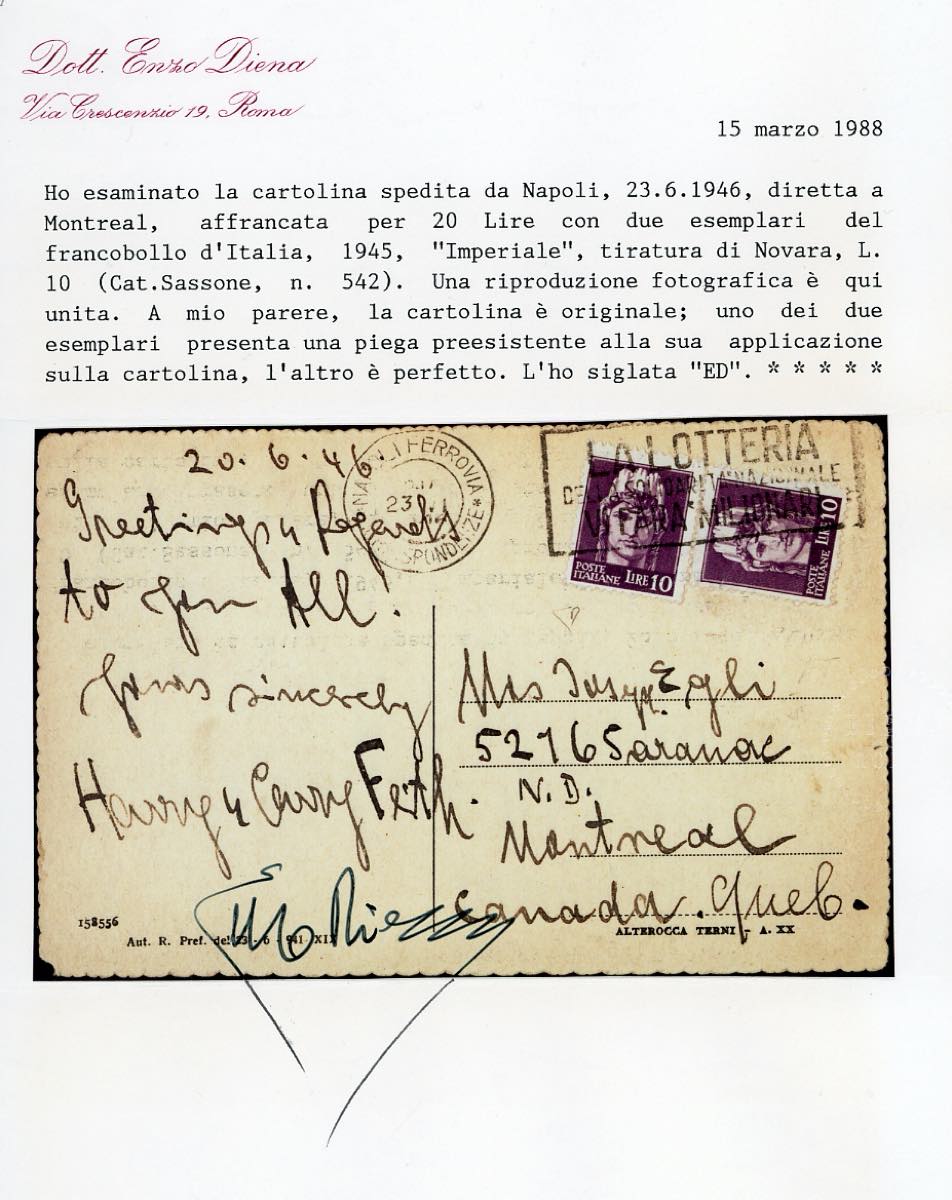 Dott. Enzo Diena
Via Crescenzio 19, Roma
15 marzo 1988
Ho esaminato la cartolina spedita da Napoli, 23.6.1946, diretta a
Montreal, affrancata per 20 Lire con due esemplari del
francobollo d'Italia, 1945, "Imperiale", tiratura di Novara, L.
10 (Cat.Sassone, n. 542). Una riproduzione fotografica è qui
unita. A mio parere, la cartolina è originale; uno dei due
esemplari presenta una piega preesistente alla sua applicazione
sulla cartolina, l'altro è perfetto. L'ho siglata "ED". * * * * *
20.6.46
NAPOLI FERROVIA *
23
LA LOTTERIA
MILIONARI
POSTE ITALIANE LIRE 10
POSTE ITALIANE LIRE 10
Greetings & Regards
to you All!
Yours sincerely
Harry &
Mrs Egli
5216 Saranac
N.D.
Montreal
Canada. Queb.
158556
Aut. R. Pref. del 23 - 6 - 941 - XIX
ALTEROCCA TERNI - A. XX
Enzo Diena